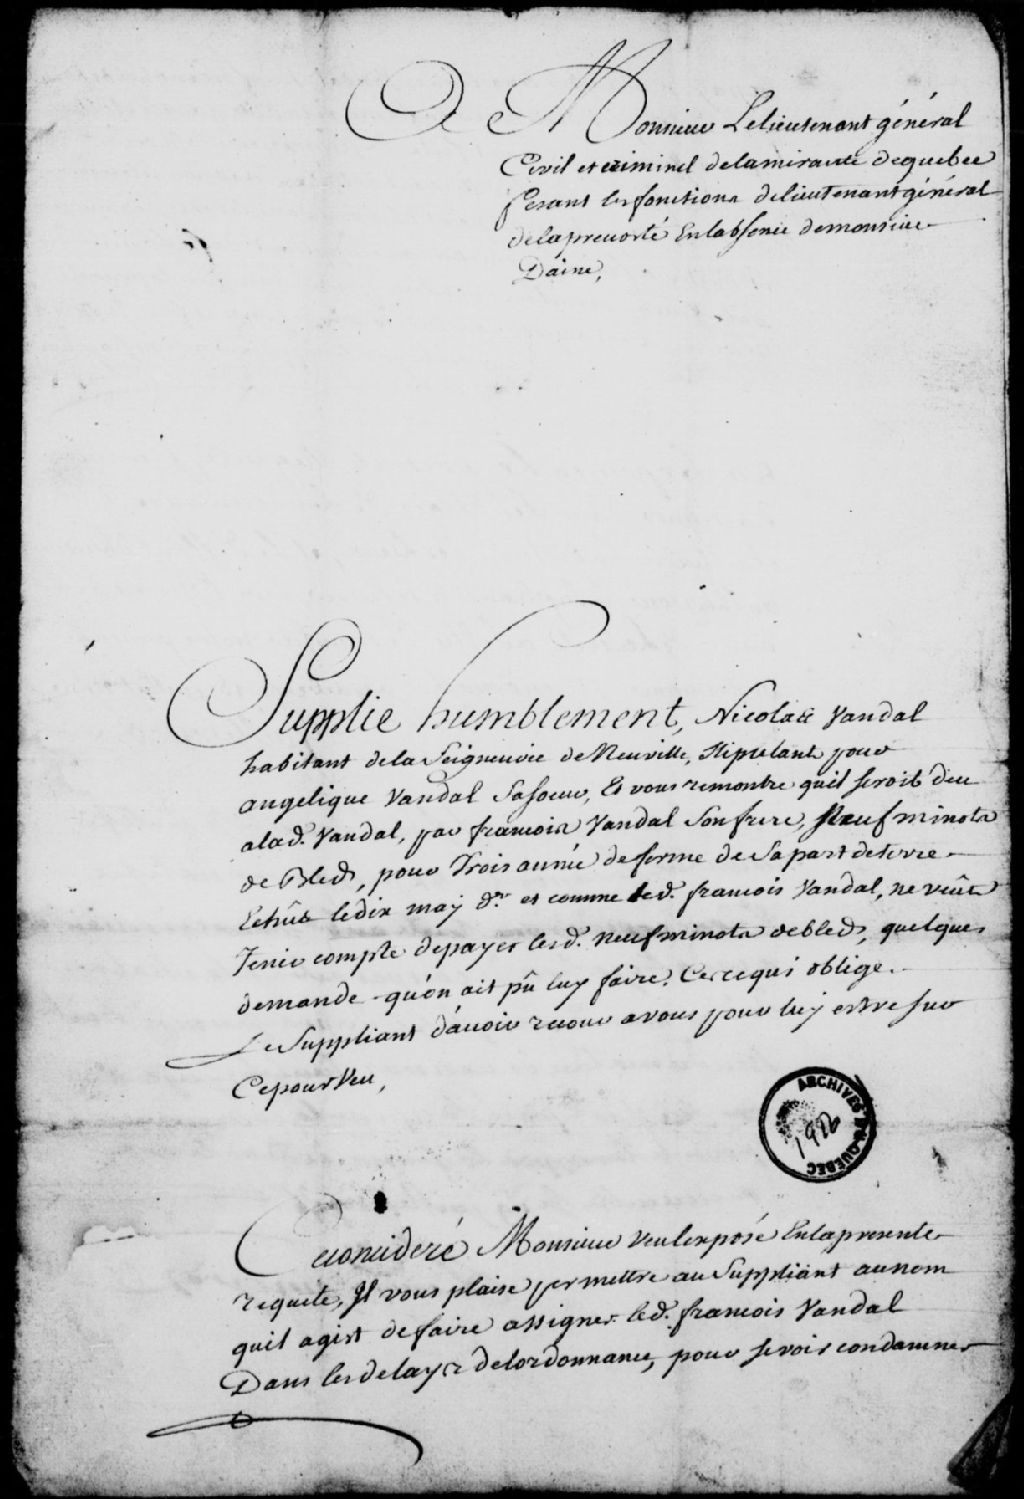 A Monsieur Le lieutenant général
Civil et criminel delamirauté dequebec
fesant les fonctions delieutenant général
delaprevosté Enlabsence demonsieur
Daine,
Supplie humblement, Nicolas Vandal
habitant dela Seigneurie deNeuville, stipulant pour
angelique Vandal Sasoeur, Et vous remontre quil seroit deu
alad. Vandal, par francois Vandal Son frere, Neuf minots
de Bled, pour Trois année deferme de Sa part deterre
Echûs ledix may d.er et comme led. francois Vandal, ne veût
Tenir compte depayer lesd. neuf minots debled, quelques
demande qu'on ait pû luy faire, Cecequi oblige
Le Suppliant d'avoir recour avous pour luy estre sur
Cepourveu,
Ceconsideré Monsieur veulexposé Enlapresente
requete, Il vous plaise permettre au Suppliant aunom
quil agist defaire assigner led. francois Vandal
Dans les delays delordonnance, pour sevoir condamner
ARCHIVES D QUÉBEC